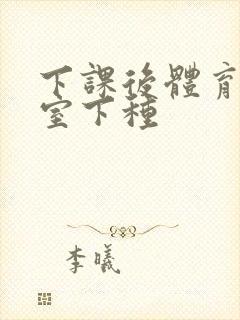 下課後體育
室下種
李曦